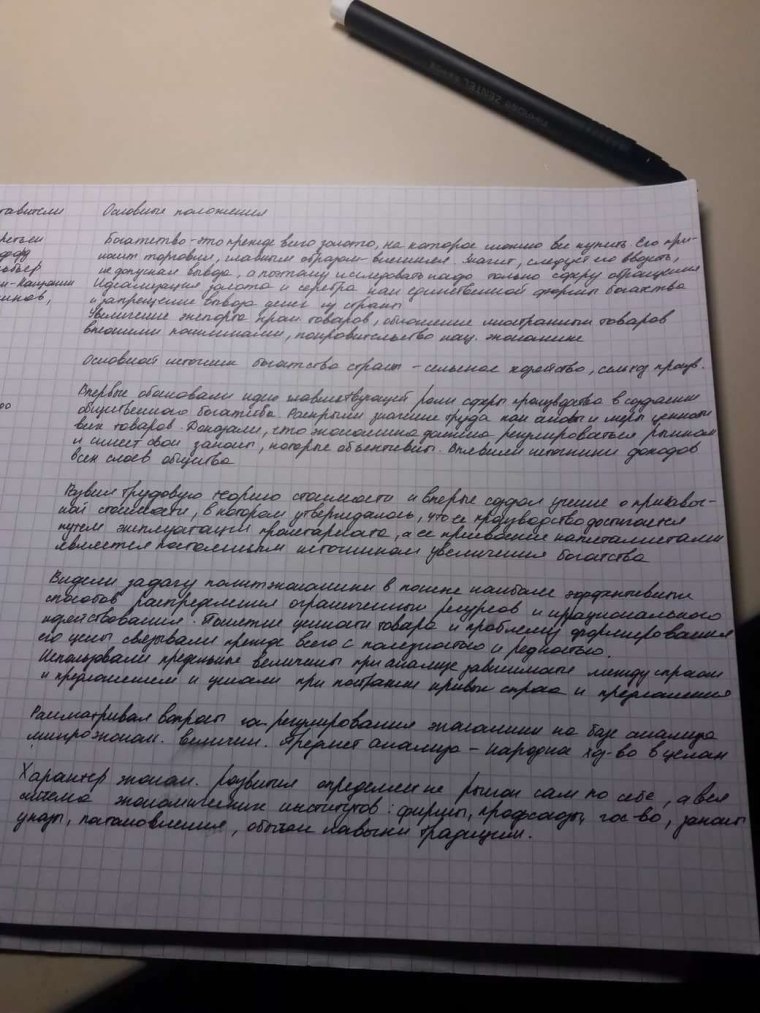 Основные положения
Богатство - это прежде всего золото, на которое можно все купить. Его при-
носит торговля, главным образом - внешняя. Значит, следует его ввозить,
не допускал вывода, а поэтому исследовать надо только сферу обращения
Идеализация золота и серебра как единственной формы богатства
и запрещение вывода денег из страны
Увеличение экспорта пром. товаров, обложение иностранных товаров
высокими пошлинами, покровительство нац. экономике
Основной источник богатства страны - сельское хозяйство, сельхоз произв.
Впервые обосновали идею главенствующей роли сферы производства в создании
общественного богатства. Раскрыли значение труда как основы и меры ценности
всех товаров. Доказали, что экономика должна регулироваться рынком
и имеет свои законы, которые объективны. Выявили источники доходов
всех слоев общества
Развил трудовую теорию стоимости и впервые создал учение о прибавоч-
ной стоимости, в котором утверждалось, что ее производство достигается
путем эксплуатации пролетариата, а ее присвоение капиталистами
является постоянным источником увеличения богатства
Видели задачу политэкономики в поиске наиболее эффективных
способов распределения ограниченных ресурсов и их рационального
Понятие ценности товара и проблему формирования
его цены связывали прежде всего с полезностью и редкостью.
Использовали предельные величины при анализе зависимости между спросом
и предложением и ценами при построении кривых спроса и предложения
Рассматривал вопросы гос. регулирования экономики на базе анализа
величин. Предмет анализа - народное хоз-во в целом
Характер эконом. развития определяем не рынок сам по себе, а вся
система экономических институтов: фирмы, профсоюзы, гос-во, законы
указы, постановления, обычаи навыки традиции.